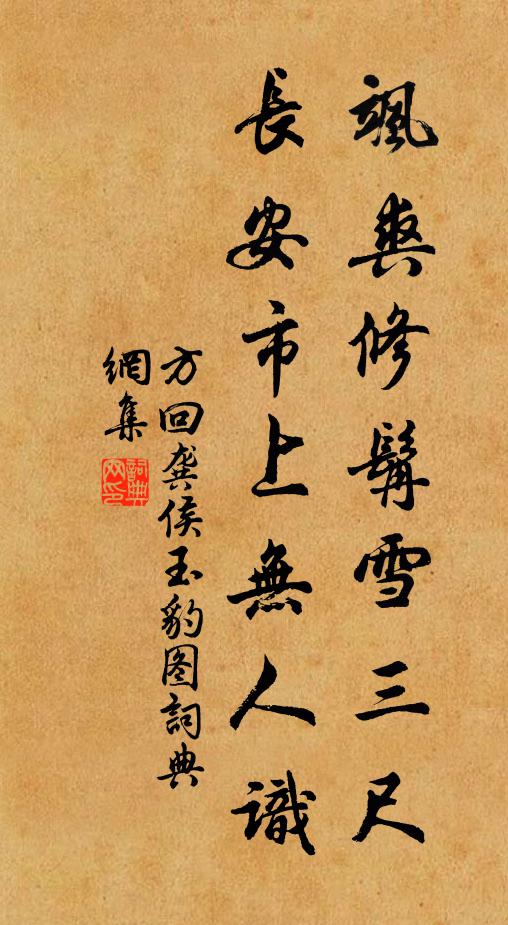 颯爽修髯雪三尺
長安市上無人識
方回龔侯玉豹图詞典
網集
詞典网印